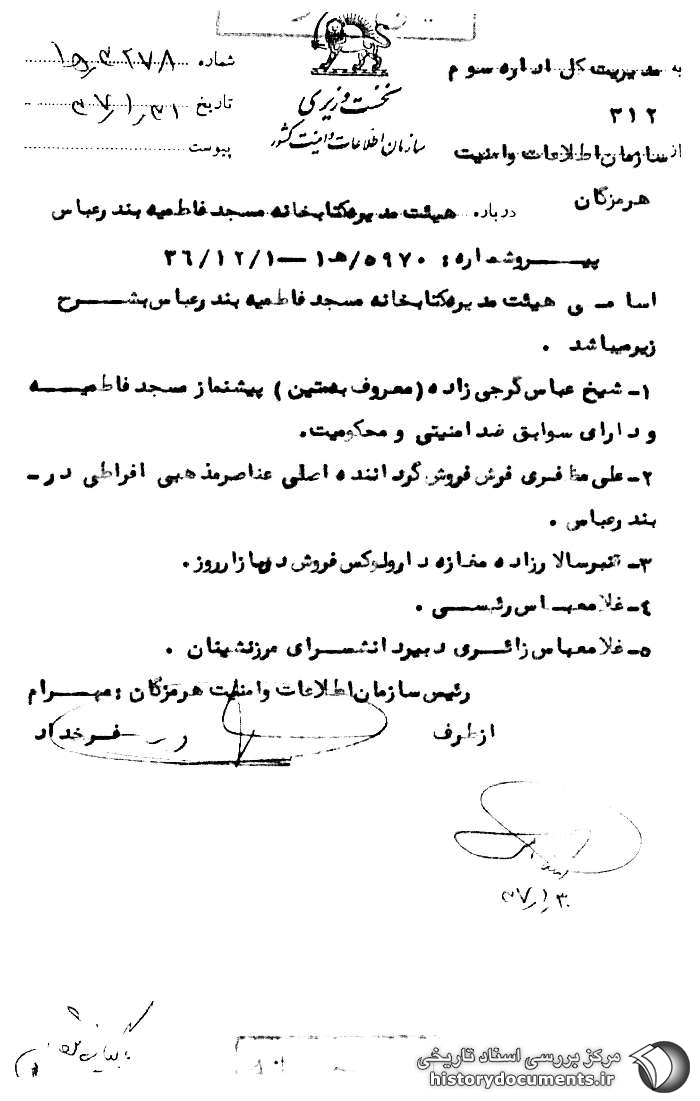 به مدیریت کل اداره سوم
۳۱۲
از سازمان اطلاعات و امنیت
هرمزگان
نخست وزیری
سازمان اطلاعات و امنیت کشور
شماره
تاریخ
پیوست
درباره هیئت مدیره کتابخانه مسجد فاطمیه بندرعباس
پیروشماره: ۵۹۷۰/ه‍۱ — ۳۶/۱۲/۱
اسامی هیئت مدیره کتابخانه مسجد فاطمیه بندرعباس بشرح
زیر میباشد .
۱- شیخ عباس گرجی زاده (معروف بمتین) پیشنماز مسجد فاطمیه
و دارای سوابق ضد امنیتی و محکومیت.
۲- علی مظفری فرش فروش گرداننده اصلی عناصر مذهبی افراطی در-
بندرعباس .
۳- قنبر سالارزاده مغازه دار ولوکس فروش در بازار روز.
۴- غلامعباس رئسی .
۵- غلامعباس زائری دبیر دانشسرای مرزنشینان .
رئیس سازمان اطلاعات و امنیت هرمزگان : مهرام
از طرف
فرخداد
مرکز بررسی اسناد تاریخی
historydocuments.ir